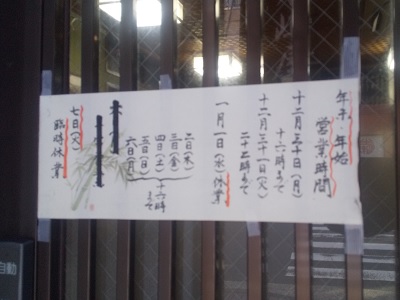 年末・年始
営業時間
十二月三十日(月)
十六時まで
十二月三十一日(火)
二十三時まで
一月一日(水)休業
二日(木)
三日(金)
四日(土)
五日(日)
六日(月)
十六時まで
七日(火)
臨時休業
自動